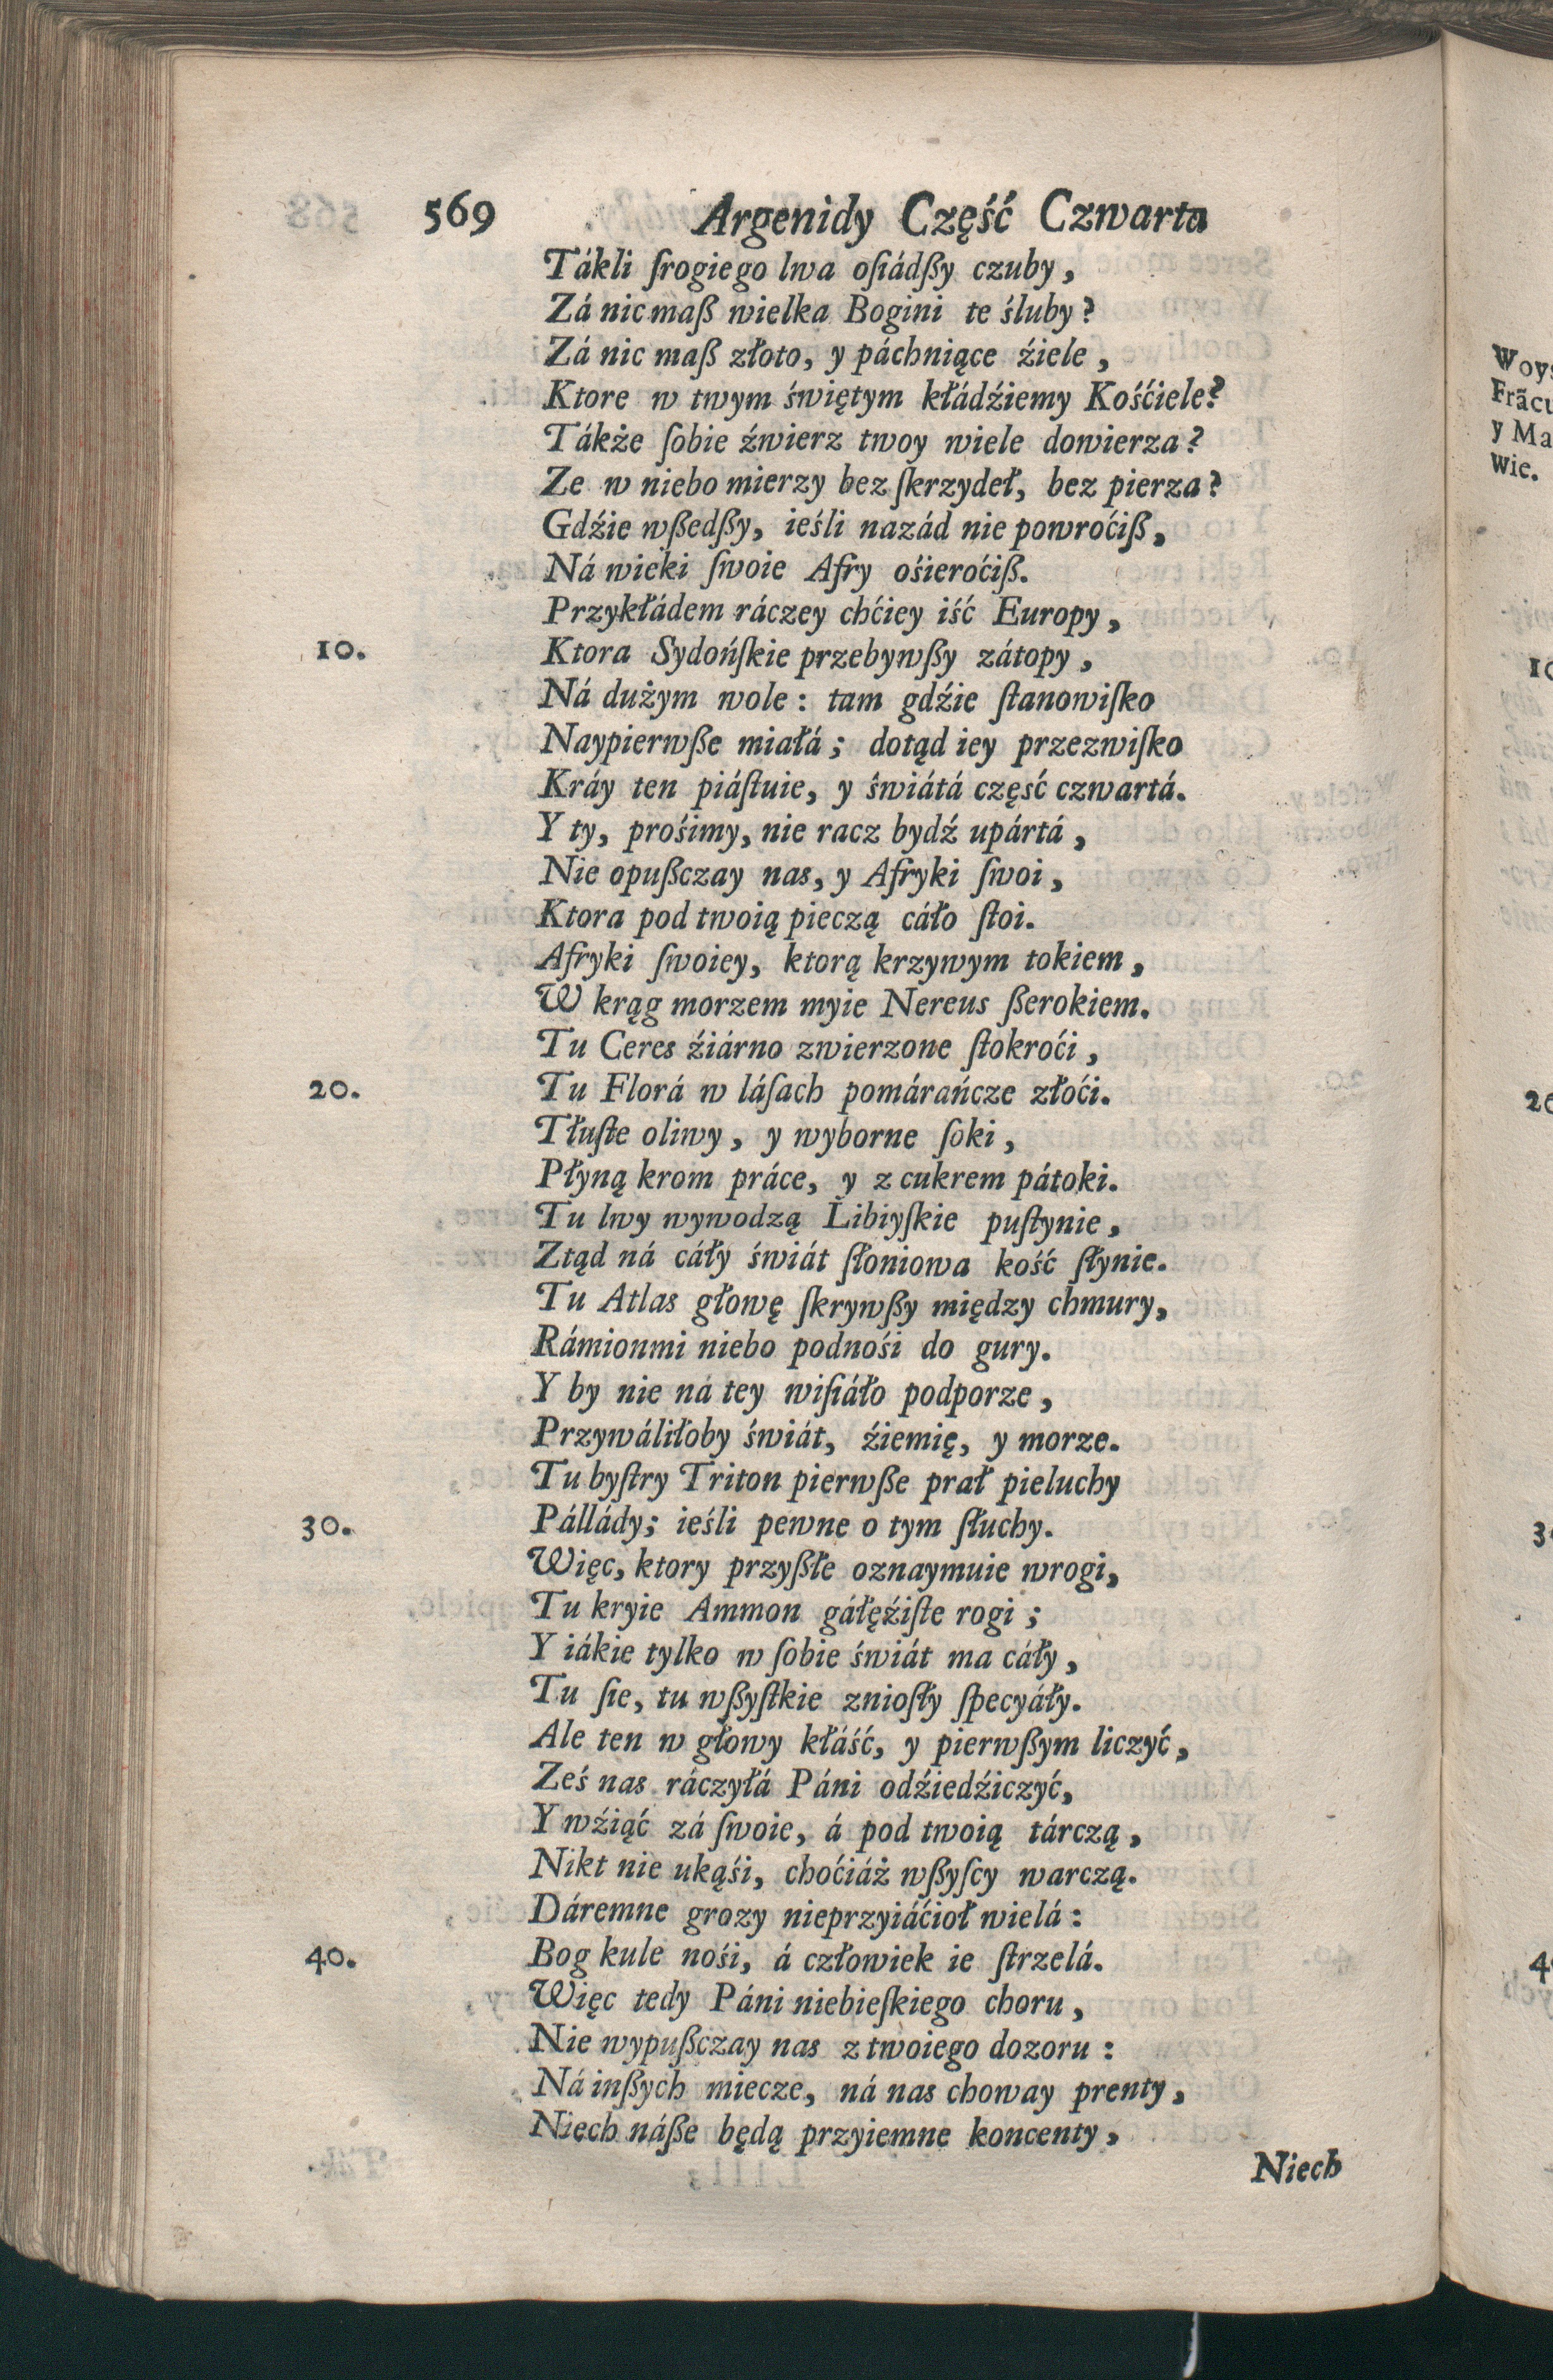 569 Argenidy Część Czwarta
Tákli ſrogiego lwa oſiádßy czuby,
Zá nic maß wielka Bogini te śluby?
Zá nic maß złoto, y páchniące źiele,
Ktore w twym świętym kłádźiemy Kośćiele?
Tákże ſobie źwierz twoy wiele dowierza?
Ze w niebo mierzy bez ſkrzydeł, bez pierza?
Gdźie wßedßy, ieśli nazád nie powroćiß,
Ná wieki ſwoie Afry ośieroćiß.
Przykłádem ráczey chćiey iść Europy,
10. Ktora Sydońſkie przebywßy zátopy,
Ná dużym wole: tam gdźie ſtanowiſko
Naypierwße miałá; dotąd iey przezwiſko
Kráy ten piáſtuie, y świátá część czwartá.
Y ty, prośimy, nie racz bydź upártá,
Nie opußczay nas, y Afryki ſwoi,
Ktora pod twoią pieczą cáło ſtoi.
Afryki ſwoiey, ktorą krzywym tokiem,
W krąg morzem myie Nereus ßerokiem.
Tu Ceres źiárno zwierzone ſtokroći,
20. Tu Florá w láſach pomárańcze złoći.
Tłuſte oliwy, y wyborne ſoki,
Płyną krom práce, y z cukrem pátoki.
Tu lwy wywodzą Libiyſkie puſtynie,
Ztąd ná cáły świát ſłoniowa kość ſłynie.
Tu Atlas głowę ſkrywßy między chmury,
Rámionmi niebo podnośi do gury.
Y by nie ná tey wiſiáło podporze,
Przywáliłoby świát, źiemię, y morze.
Tu byſtry Triton pierwße prał pieluchy
30. Pállády; ieśli pewne o tym ſłuchy.
Więc, ktory przyßłe oznaymuie wrogi,
Tu kryie Ammon gáłęźiſte rogi;
Y iákie tylko w ſobie świát ma cáły,
Tu ſie, tu wßyſtkie znioſły ſpecyáły.
Ale ten w głowy kłáść, y pierwßym liczyć,
Ześ nas ráczyłá Páni odźiedźiczyć,
Y wźiąć zá ſwoie, á pod twoią tárczą,
Nikt nie ukąśi, choćiáż wßyſcy warczą.
Dáremne grozy nieprzyiáćioł wielá:
40. Bog kule nośi, á człowiek ie ſtrzelá.
Więc tedy Páni niebieſkiego choru,
Nie wypußczay nas z twoiego dozoru:
Ná inßych miecze, ná nas choway prenty,
Niech náße będą przyiemne koncenty,
Niech
Frãcu
y Ma
wie.